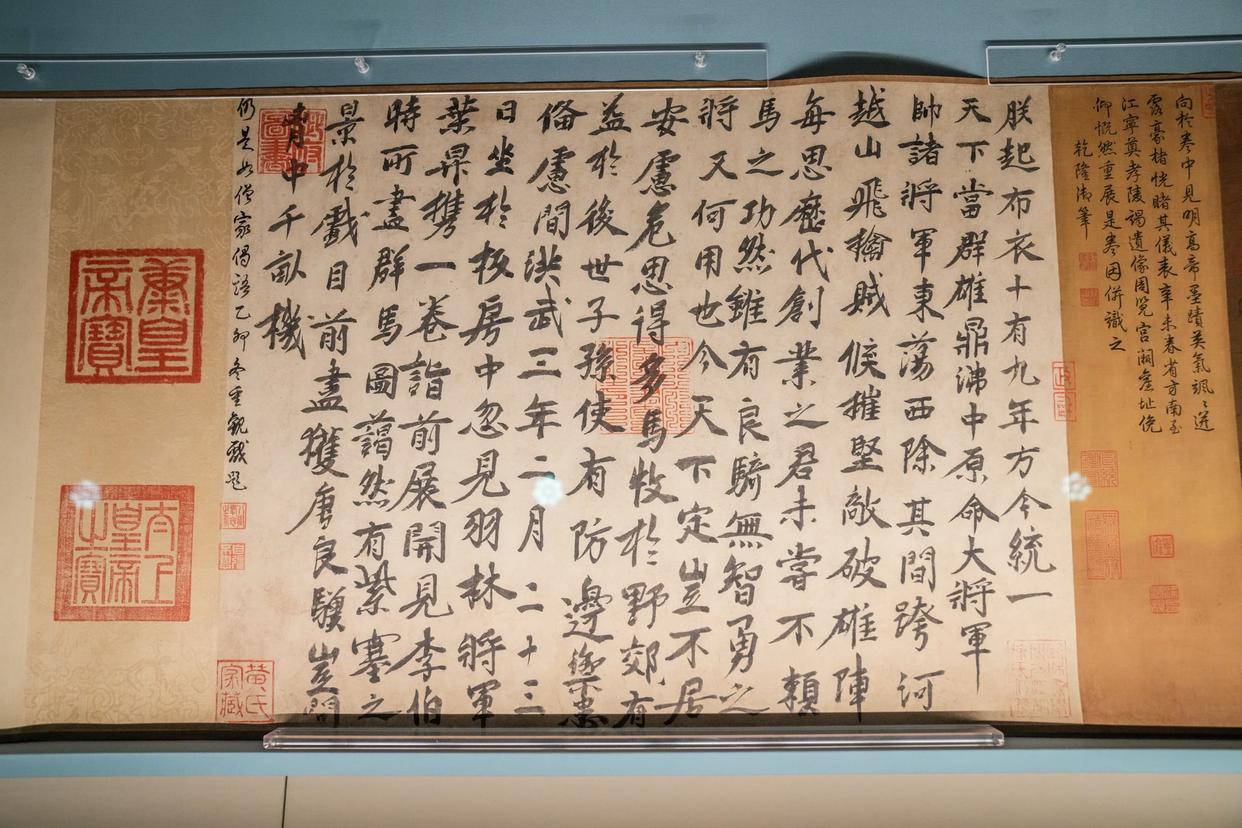 向於卷中見明高帝墨蹟英氣颯〻迸
露豪楮恍睹其儀表辛未春省方南至
江寧奠孝陵謁遺像周覽宮湘舊址俛
仰慨然重展是卷因併識之
乾隆御筆
朕起布衣十有九年方今統一
天下當群雄鼎沸中原命大將軍
帥諸將軍東蕩西除其間跨河
越山飛擒賊候摧堅敵破雄陣
每思歷代創業之君未嘗不賴
馬之功然雖有良騎無智勇之
將又何用也今天下定豈不居
安慮危思得多馬牧於野郊有
益於後世子孫使有防邊禦患
俻慮間洪武三年二月二十三
日坐於板房中忽見羽林將軍
葉昇攜一卷詣前展開見李伯
時所畫群馬圖藹然有紫塞之
景於戲目前盡獲唐良驥豈問
胷中千畝機
仍是此僧家偈語乙卯冬重觀戲題
黄氏家藏
太上皇帝之寶